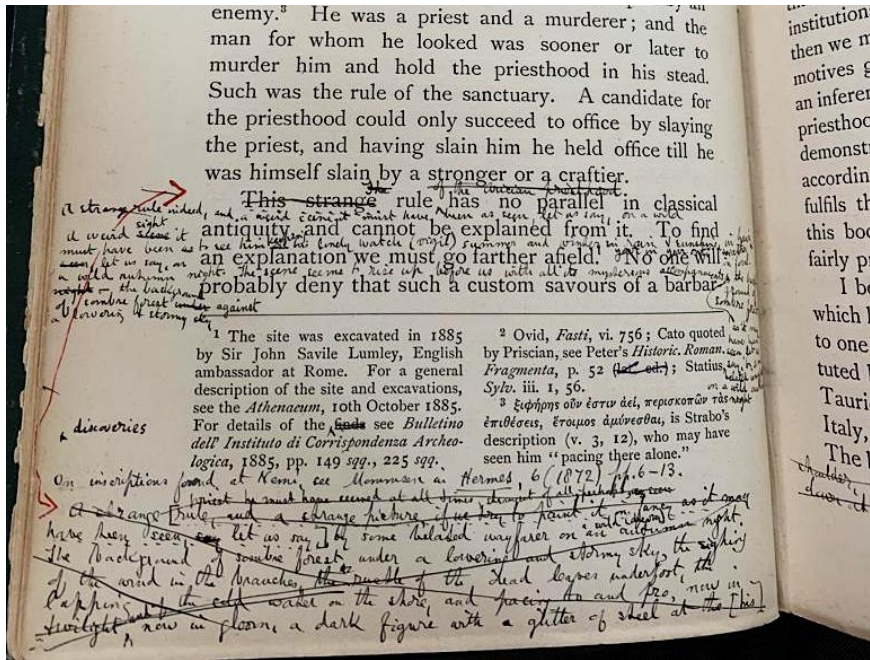 enemy.³ He was a priest and a murderer; and the
man for whom he looked was sooner or later to
murder him and hold the priesthood in his stead.
Such was the rule of the sanctuary. A candidate for
the priesthood could only succeed to office by slaying
the priest, and having slain him he held office till he
was himself slain by a stronger or a craftier.
The
This strange rule has no parallel in classical
antiquity, and cannot be explained from it. To find
an explanation we must go farther afield. No one will
probably deny that such a custom savours of a barbar-
A strange rule indeed, and a weird scene it must have been as seen, let us say, on a wild
a weird sight it
must have been as to see him at his lonely watch (vigil) summer and winter in rain & sunshine
seen, let us say, on
a wild autumn night. The scene seems to rise up before us with all its mysterious
night – the background
of sombre forest under against
a lowering & stormy sky
¹ The site was excavated in 1885
by Sir John Savile Lumley, English
ambassador at Rome. For a general
description of the site and excavations,
see the Athenaeum, 10th October 1885.
discoveries
For details of the finds see Bulletino
dell' Instituto di Corrispondenza Archeo-
logica, 1885, pp. 149 sqq., 225 sqq.
² Ovid, Fasti, vi. 756; Cato quoted
by Priscian, see Peter's Historic. Roman.
Fragmenta, p. 52 (1st ed.); Statius,
Sylv. iii. 1, 56.
³ ξιφήρης οὖν ἐστιν ἀεί, περισκοπῶν τὰς
ἐπιθέσεις, ἕτοιμος ἀμύνεσθαι, is Strabo's
description (v. 3, 12), who may have
seen him "pacing there alone."
On inscriptions found at Nemi, see Mommsen in Hermes, 6 (1872) pp. 6–13.
priest he must have seemed at all times,
A strange [rule, and a strange picture, if we try to paint it in fancy as it may
have been seen, let us say] by some belated wayfarer on an autumn night.
The background of sombre forest under a lowering and stormy sky, the sighing
of the wind in the branches, the rustle of the dead leaves underfoot, the
lapping of the cold water on the shore, and pacing to and fro, now in
twilight and now in gloom, a dark figure with a glitter of steel at the [his
institution
then we m
motives g
an inferen
priesthoo
demonst
accordin
fulfils th
this bo
fairly p
I be
which I
to one
tuted
Tauri
Italy,
The
shoulder
down